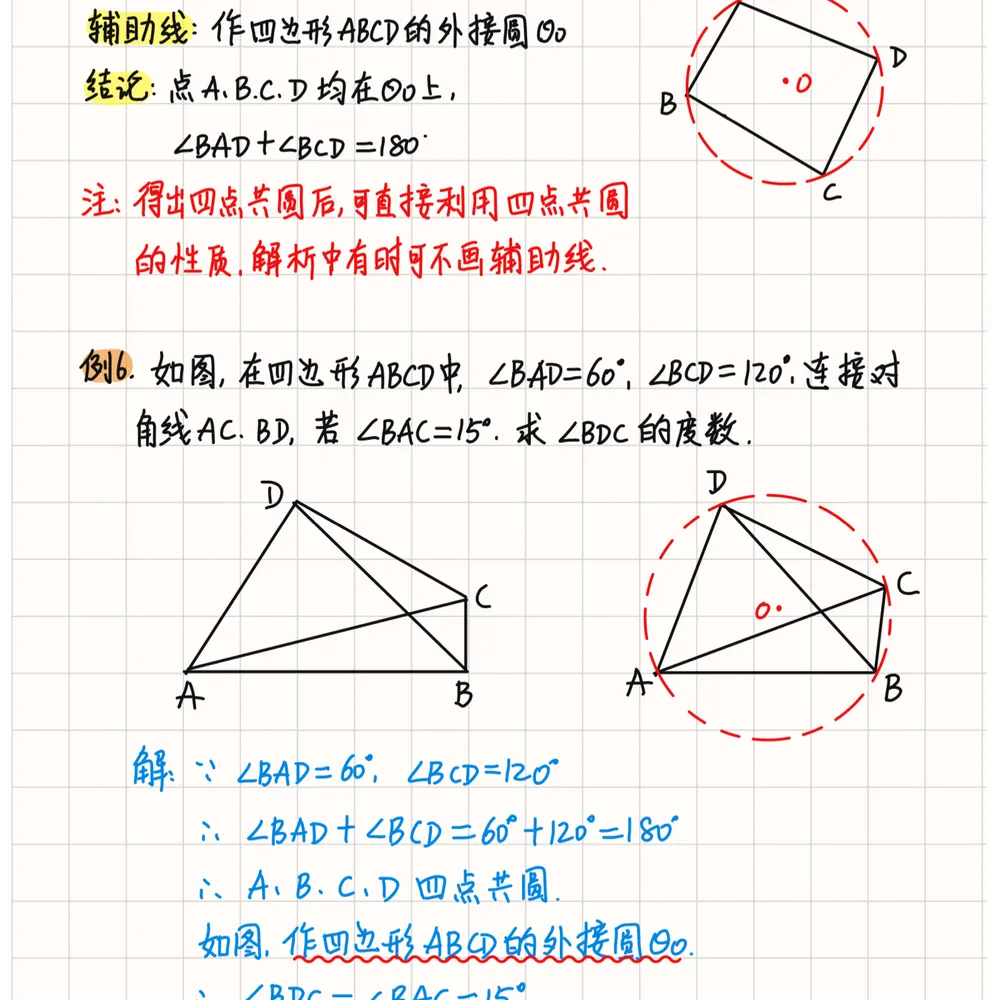 辅助线: 作四边形ABCD的外接圆⊙O
结论: 点A.B.C.D均在⊙O上,
∠BAD+∠BCD=180°
注: 得出四点共圆后,可直接利用四点共圆
的性质,解析中有时可不画辅助线.
D
O
B
C
例6. 如图,在四边形ABCD中, ∠BAD=60°, ∠BCD=120°,连接对
角线AC.BD, 若∠BAC=15°. 求∠BDC的度数.
D
C
A
B
D
C
O
A
B
解: ∵ ∠BAD=60°, ∠BCD=120°
∴ ∠BAD+∠BCD=60°+120°=180°
∴ A.B.C.D四点共圆.
如图,作四边形ABCD的外接圆⊙O.
∴ ∠BDC=∠BAC=15°